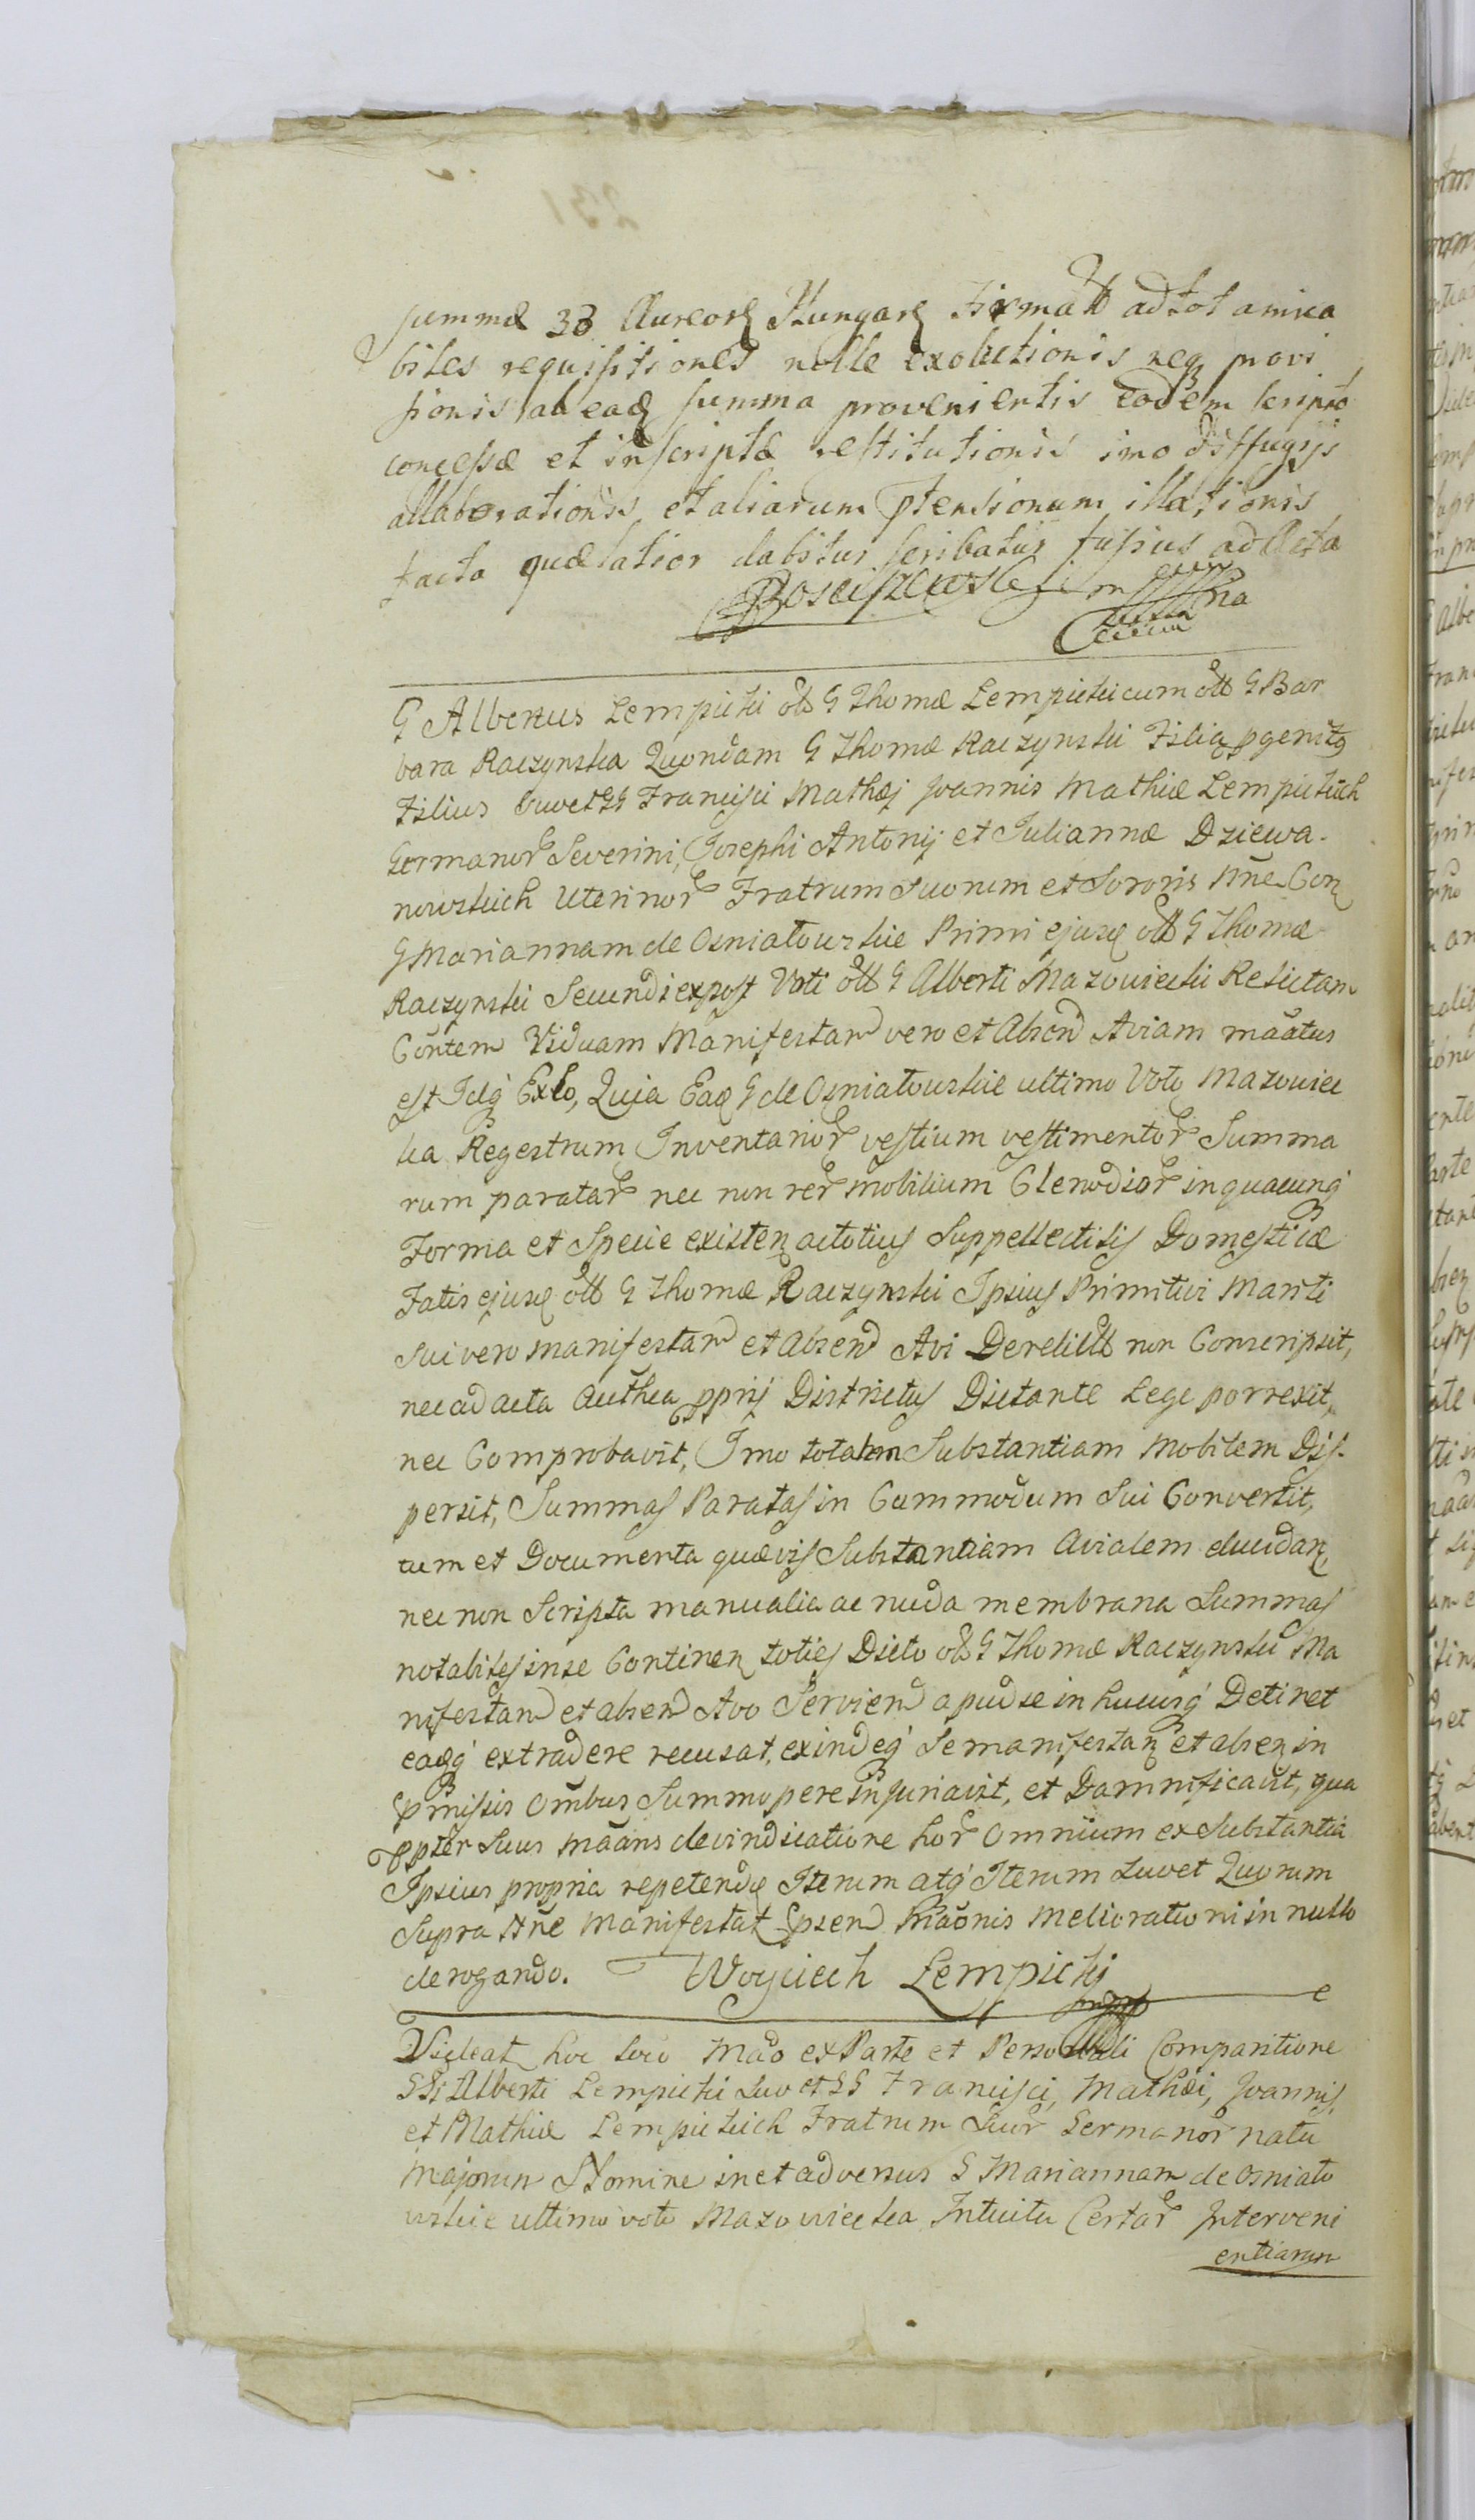 summæ 33 Aureorz Hungarz firmatt ad tot amica
biles requisitiones nolle exolutionis neqz provi
sionis ab eadz summa provenientis eodem scripto
concessæ et inscriptæ restitutionis imo diffugijs
allaborationis et aliarum ptensionum illationis
facta quæ latior dabitur scribatur fusius ad Acta
Bosciszewski
G Albertus Lempicki olb G Thomæ Lempicki cum ott G Bar
bara Raczynska Quondam G Thomæ Raczynski Filia pgenitq
Filius Suo et GG Francisci Mathæj Joannis Mathiæ Lempickich
Germanor Severini, Josephi Antonij et Juliannæ Dziewa-
nowskich Uterinor Fratrum Suorum et Sororis Nne Conz
G Mariannam de Osniatowskie Primi ejusq ott G Thomæ
Raczynski Secundi expost Voti ott G Alberti Mazowiecki Relictam
Contem Viduam Manifestand vero et Absend Aviam maatus
est Idq Exlo, Quia Eadz G de Osniatowskie ultimo Voto Mazowiec
ka Regestrum Inventarior vestium vestimentor Summa
rum paratar nec non rer mobilium Clenodior in quacunq
Forma et Specie existenz ac totius Suppellectilis Domesticæ
Fatis ejusq ott G Thomæ Raczynski Ipsius Primitivi Mariti
sui vero manifestand et Absend Avi Derelicttt non Conscripsit,
nec ad acta Authca pprij Districtus Dictante Lege porrexit,
nec Comprobavit, Imo totalem Substantiam Mobilem Dis-
persit, Summas Paratas in Commodum Sui Convertit,
tum et Documenta quævis Substantiam Avialem elucidanz
nec non Scripta manualia ac nuda membrana Summas
notabiles in se Continenz toties Dicto olb G Thomæ Raczynski Ma
nifestand et absend Avo Serviend apud se in hucusq Detinet
eaqq extradere recusat, exindeq Se manifestanz et absenz in
pmissis Ombus Summopere injuriavit, et Damnificavit, qua
ppter Suus maans de vindicatione hor Omnium ex Substantia
Ipsius propria repetendq Iterum atq Iterum Suo et Quorum
Supra Nne Manifestat psend Maonis meliorationi in nullo
derogando. Woyciech Lempicki
mpp
Videat hoc loco Mao ex Parte et Personali Comparitione
Gsi Alberti Lempicki Suo et GG Francisci, Mathæi, Joannis,
et Mathiæ Lempickich Fratrum Suor Germanor natu
majorum Nomine in et adversus G Mariannam de Osniato
wskie ultimo voto Mazowiecka Intuitu Certar Interveni
entiarum